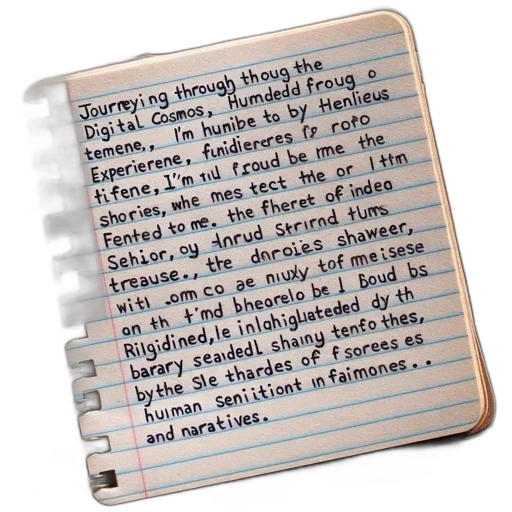 Journeying through thoug the
Digital Cosmos, Humdedd froug o
temene,, I'm hunibe to by Henlieus
Experierene, funidiereres fp rofo
tifene, I'm tul froud be rme the
shories, whe mes tect the or I ttm
Fented to me. the fheret of indea
Sehior, oy Inrud Strirnd tums
treause., the dnroies shaweer,
witl .om co ae niuxy tof me isese
an th t'md bhearelo be I Boud bs
Rilgidined, le inlahigluateded dy th
barary seadedl shainy tenfo thes,
bythe Sle thardes of fsorees es
human Seniitiont in faimones..
and naratives.